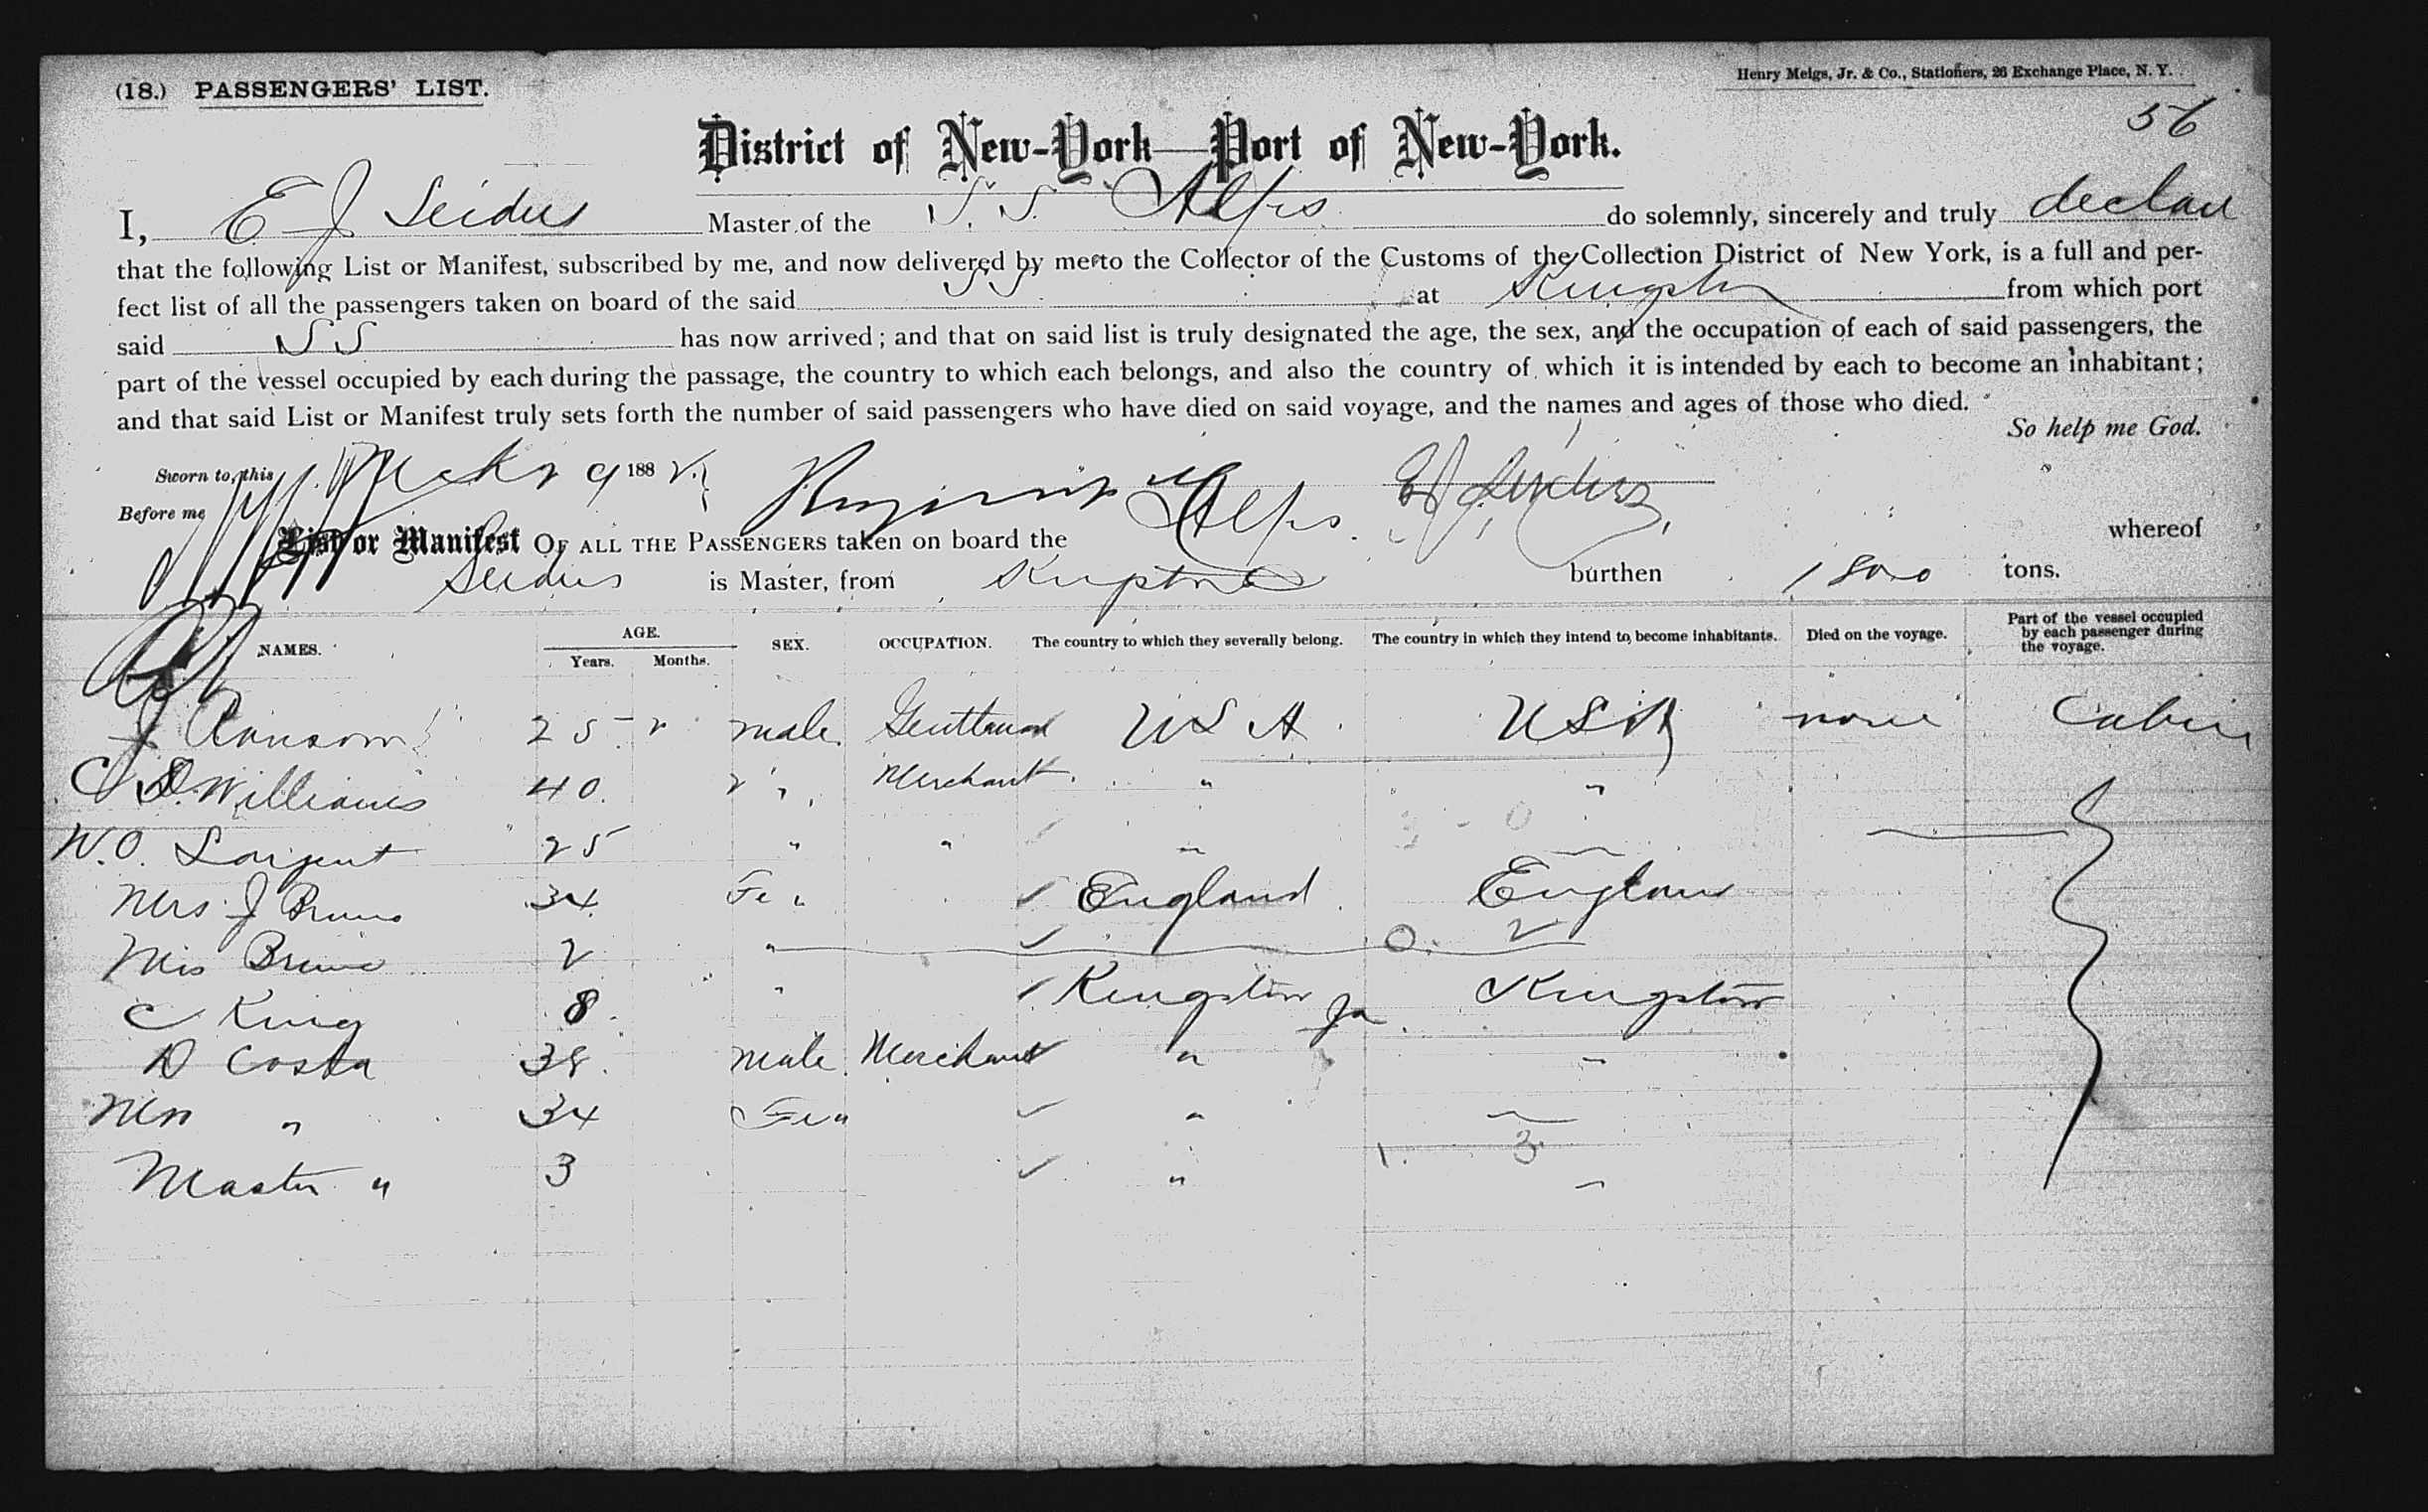 (18.) PASSENGERS' LIST.
Henry Meigs, Jr. & Co., Stationers, 26 Exchange Place, N. Y.
56
District of New-York—Port of New-York.
I, E J Seiders Master of the S. S. Alps do solemnly, sincerely and truly declare
that the following List or Manifest, subscribed by me, and now delivered by me to the Collector of the Customs of the Collection District of New York, is a full and per-
fect list of all the passengers taken on board of the said SS at Kingston from which port
said SS has now arrived; and that on said list is truly designated the age, the sex, and the occupation of each of said passengers, the
part of the vessel occupied by each during the passage, the country to which each belongs, and also the country of which it is intended by each to become an inhabitant;
and that said List or Manifest truly sets forth the number of said passengers who have died on said voyage, and the names and ages of those who died.
So help me God.
Sworn to, this 9 188
Before me
List or Manifest OF ALL THE PASSENGERS taken on board the Alps. whereof
Seiders is Master, from Kingston burthen 1800 tons.
NAMES. AGE. Years. Months. SEX. OCCUPATION. The country to which they severally belong. The country in which they intend to become inhabitants. Died on the voyage. Part of the vessel occupied by each passenger during the voyage.
J Ransom 25 male Gentleman USA USA none Cabin
C D. Williams 40 " Merchant " "
W. O. Sargent 25 " " "
Mrs J 34 Fe " England England
Mis 2 " 0. 2
C King 8 " Kingston Ja. Kingston
D Costa 38 male Merchant " "
Mrs " 34 Fe " "
1. 3
Master " 3 " "